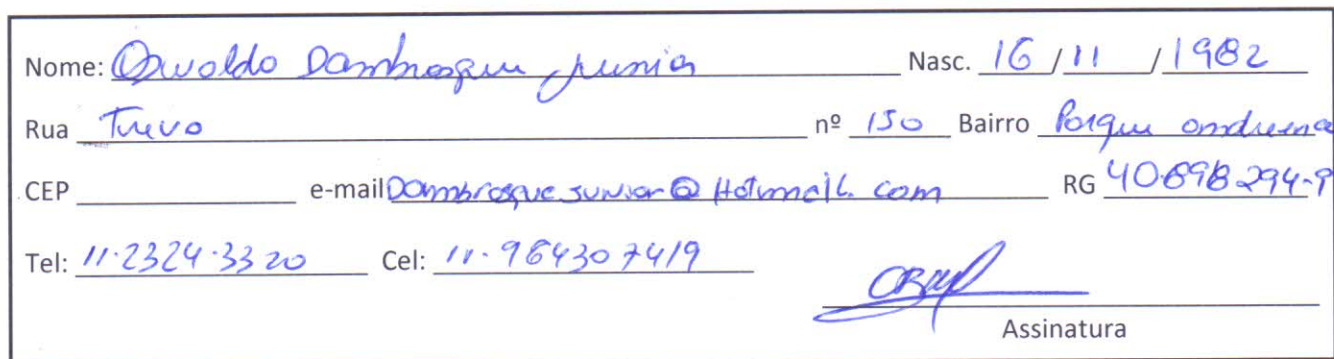 Nome: Oswaldo Dambrosque Junior Nasc. 16 / 11 / 1982
Rua Trevo nº 150 Bairro Parque andreense
CEP e-mail Dambrosque.junior@Hotmail.com RG 40.898294-9
Tel: 11.2324.3320 Cel: 11.964307419
Assinatura